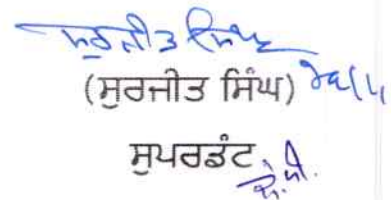 ਸੁਰਜੀਤ ਸਿੰਘ
(ਸੁਰਜੀਤ ਸਿੰਘ)
ਸੁਪਰਡੰਟ